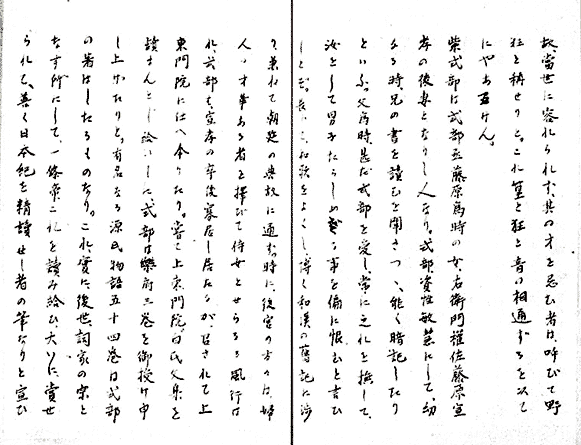 故、當世に容れられず、其の才を忌む者は、呼びて野
狂と稱せりと。これ篁と狂と音の相通ずるを以て
にやあるけん。
紫式部は式部丞藤原爲時の女、右衛門權佐藤原宣
孝の後妻となりし人なり。式部資性敏慧にして、幼
なる時、兄の書を讀むを聞きつゝ、能く暗記したり
といふ。父爲時、甚だ式部を愛し、常に之れを撫して、
汝をして男子たらしめざる事を偏に恨むと言ひ
しとぞ。長じて、和歌をよくし、博く和漢の舊記に渉
り、兼ねて朝廷の典故に通ず。時に、後宮の方々は、婦
人の才華ある者を擇びて侍女とせらるゝ風行は
れ、式部も、宣孝の卒後寡居し居たるが、召されて上
東門院に仕へ令りたり。嘗て上東門院、白氏文集を
讀まんとし給ひしに、式部は樂府二巻を御授け申
し上げたりと。有名なる源氏物語五十四巻は式部
の著はしたるものなり。これ實に後世詞家の宗と
なす所にして、一條帝これを讀み給ひ、大いに賞せ
られて、善く日本紀を精讀せし者の筆なりと宣ひ